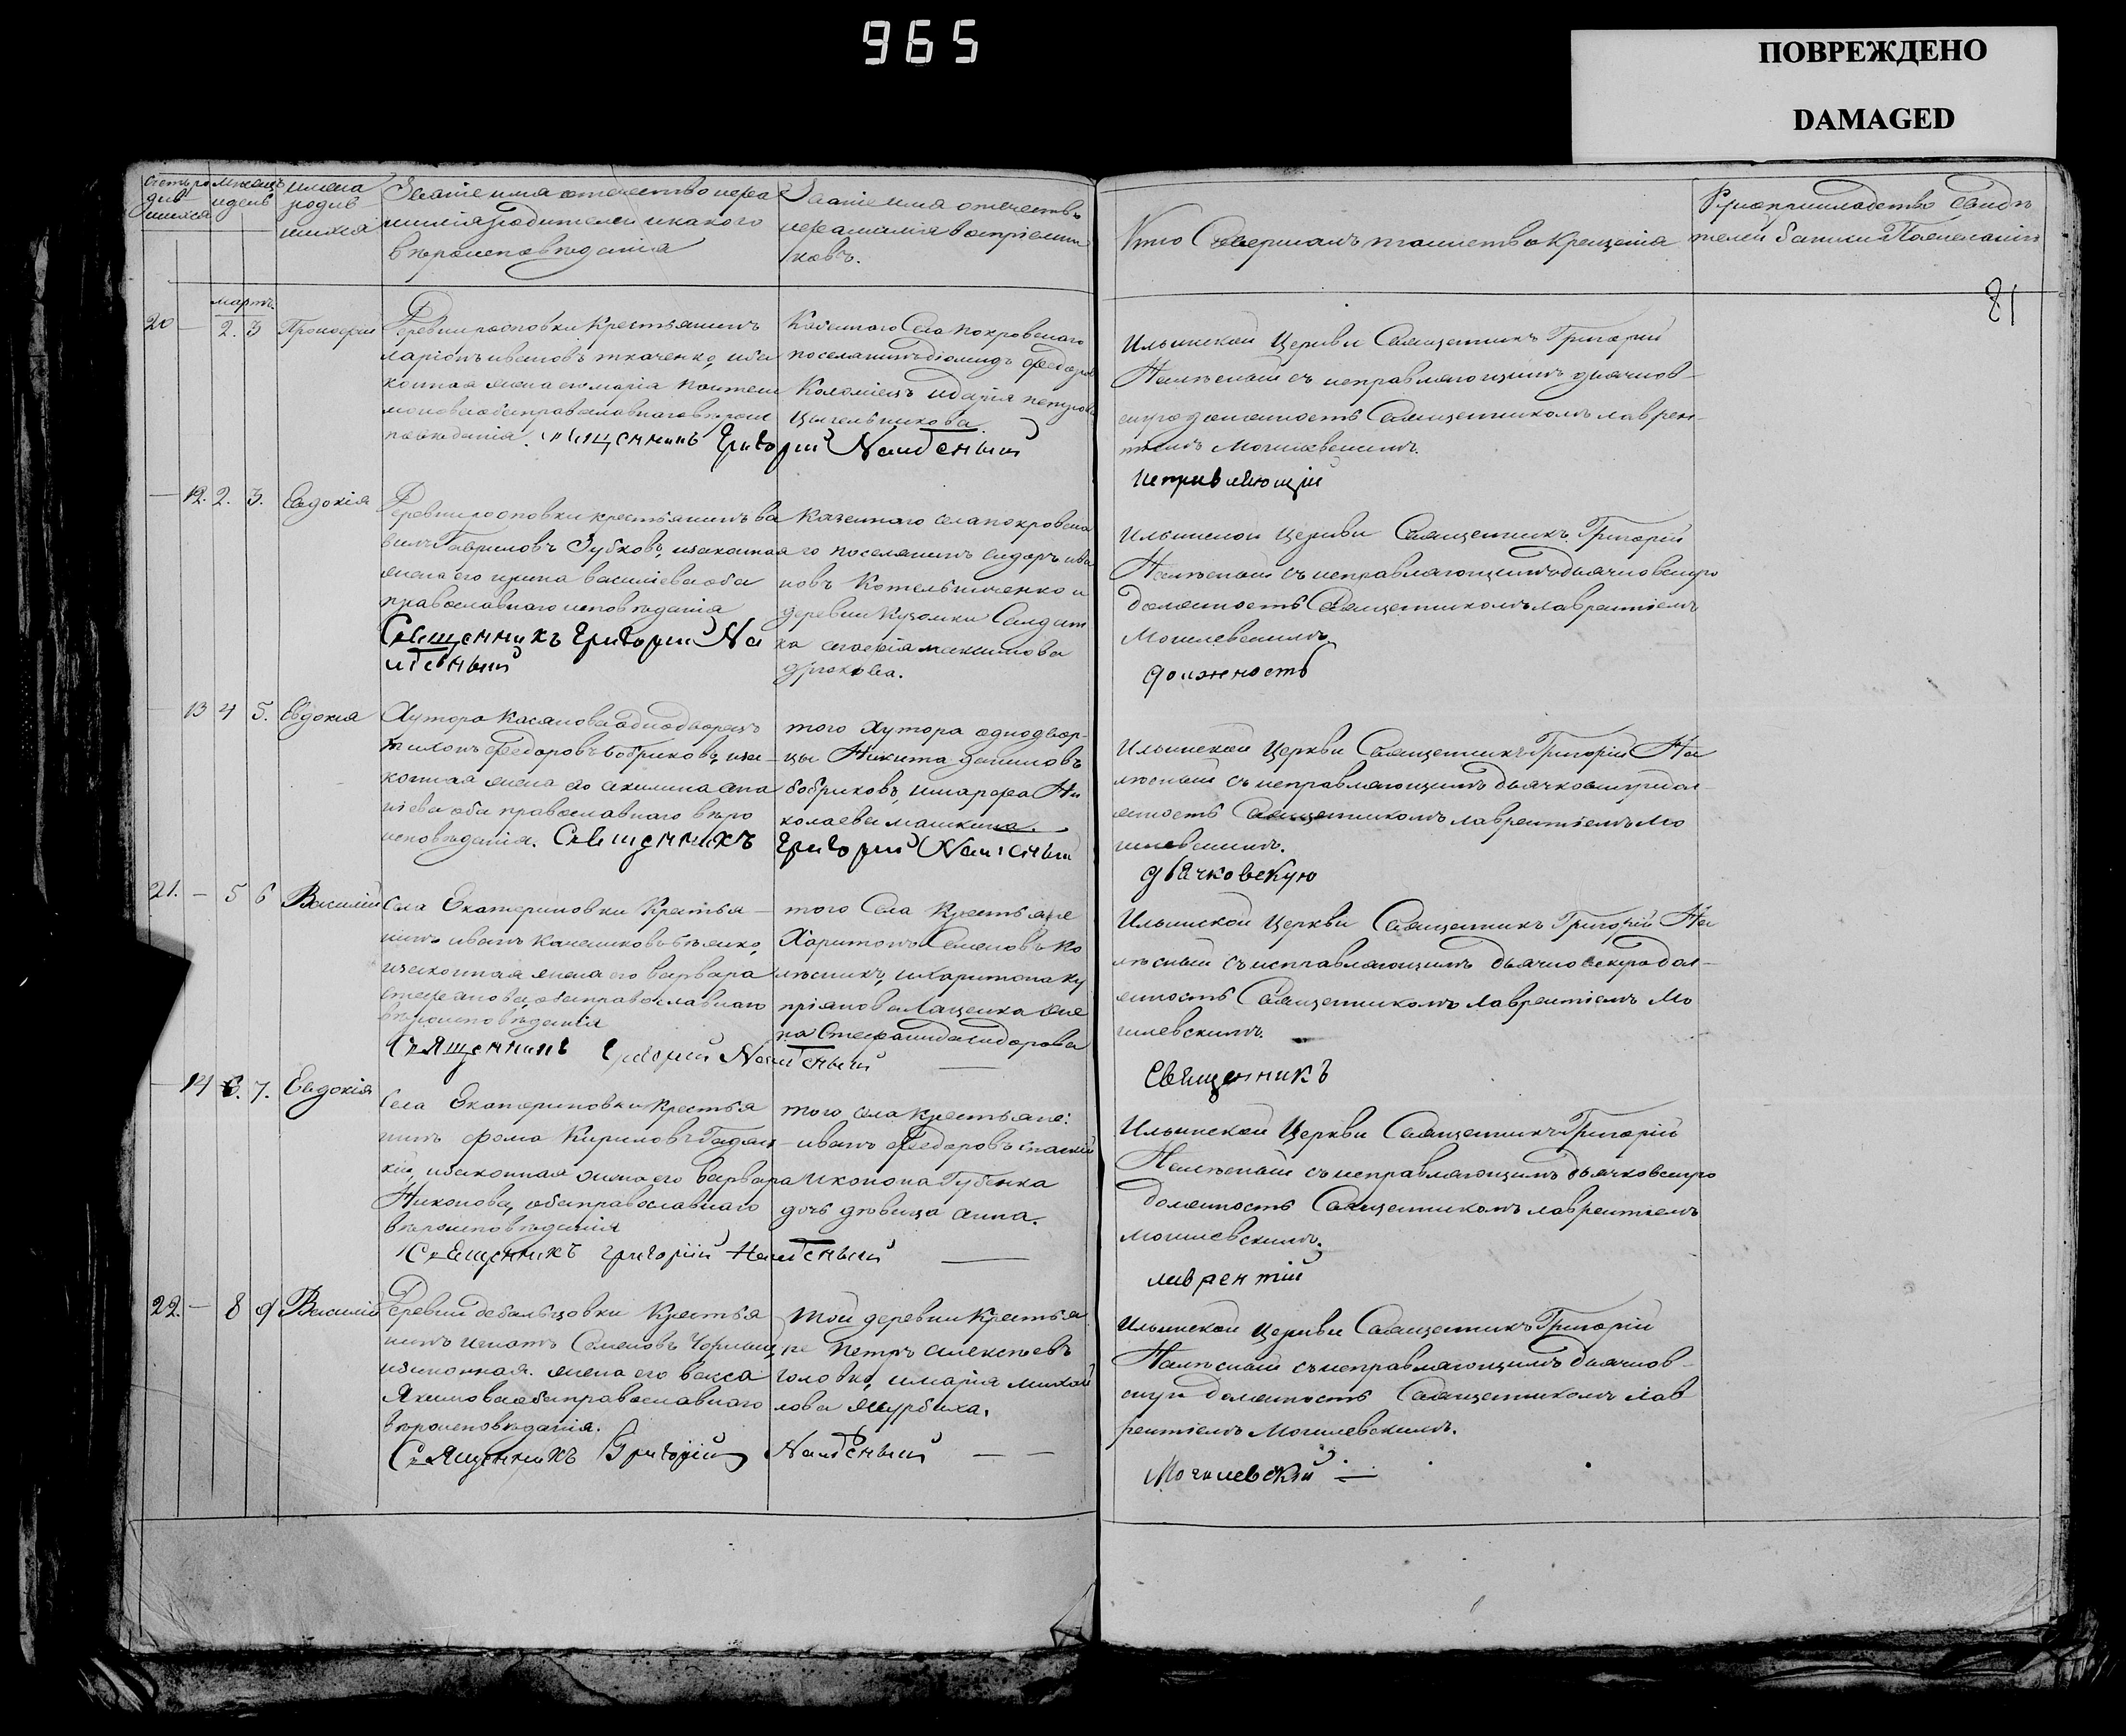 965
ПОВРЕЖДЕНО
DAMAGED
Счетъ ро
див
шихся
мѣсяцъ
и день
имена
родив
шихся
Званіе имя отечество и фа
милія родителей и какого
вѣроисповѣданія
Званіе имя отечество
и фамилія воспріемни
ковъ.
Кто Совершалъ таинство крещенія
Рукоприкладство Свидѣ
телей записи По желанію
81
мартъ
20 — 2. 3 Прокофій
Деревни расповки Крестьянинъ
ларіонъ ивановъ ткаченко, и за
конная жена его марія
оба православнаго вѣроис
повѣданія. священникъ Григорій Наилѣсный
Казеннаго Села покровскаго
поселянинъ діомидъ федоровъ
Коломіецъ и дарія петрова
цыгельникова.
Ильинской Церкви Священникъ Григорій
Наилѣсный съ исправляющимъ дьячков-
скую должность Священникомъ лаврен-
тіемъ Могилевскимъ.
исправляющій
— 12. 2. 3. Евдокія
Деревни росповки крестьянинъ ва
силъ Гавриловъ Зубковъ, и законная
жена его ирина василіева оба
православнаго исповѣданія
Священникъ Григорій На
илѣсный
Казеннаго села покровска
го поселянинъ сидоръ ива
новъ Котельниченко и
деревни Кузомки Салдат
ка агафія максимова
дрюкова.
Ильинской церкви Священникъ Григорій
Наилѣсный съ исправляющимъ дьячковскую
должность Священникомъ лаврентіемъ
Могилевскимъ
должность
13 4 5. Евдокія
Хутора Касянова однодворецъ
филонъ федоровъ бобриковъ, и за-
конная жена его акилина
оба православнаго вѣро
исповѣданія. Священникъ Григорій Наилѣсный
того Хутора однодвор-
цы Никита даниловъ
бобриковъ, и марфа Ни
колаева машкина.
Ильинской Церкви Священникъ Григорій На
илѣсный съ исправляющимъ дьячковскую дол-
жность Священникомъ лаврентіемъ Мо
гилевскимъ.
дьячковскую
21. — 5 6 Василій
Села Екатериновки Крестья-
нинъ иванъ
и законная жена его варвара
стефанова, оба православнаго
вѣроисповѣданія
Священникъ Григорій Наилѣсный
того Села Крестьяне
Харитонъ Семеновъ Ко
лѣсникъ, и Харитона ку
пріянова Лащенка же
на Стефанида сидорова
Ильинской Церкви Священникъ Григорій На
илѣсный съ исправляющимъ дьячковскую дол-
жность Священникомъ лаврентіемъ Мо
гилевскимъ.
Священникъ
— 14 6. 7. Евдокія
Села Екатериновки Крестья
нинъ фома Кириловъ Гадяц-
кій, и законная жена его варвара
Никонова, оба православнаго
вѣроисповѣданія
Священникъ Григорій Наилѣсный
того села Крестьяне:
иванъ Федоровъ
и конона Губенка
дочь дѣвица анна.
Ильинской Церкви Священникъ Григорій
Наилѣсный съ исправляющимъ дьячковскую
должность Священникомъ лаврентіемъ
могилевскимъ.
лаврентій
22. — 8 9 Василій
Деревни дебальцовки Крестья
нинъ игнатъ Семеновъ Чорный,
и законная жена его васса
Якимова оба православнаго
вѣроисповѣданія.
Священникъ Григорій Наилѣсный
той деревни Крестья
не Петръ алексѣевъ
головко, и марія михай
лова журбиха.
Ильинской церкви Священникъ Григорій
Наилѣсный съ исправляющимъ дьячков-
скую должность Священникомъ лав
рентіемъ Могилевскимъ.
Могилевскій